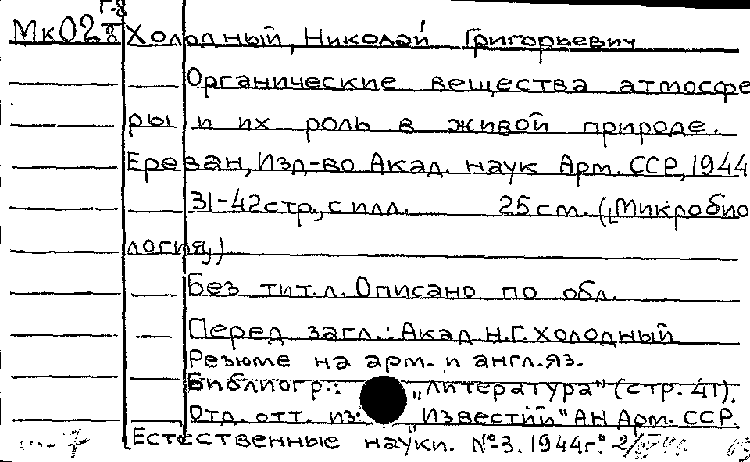 Г-8
МкО2 8 Холодный, Николай Григорьевич
Органические вещества атмосфе
ры и их роль в живой природе.
Ереван, Изд-во Акад. наук Арм. ССР, 1944
31-42 стр., с илл. 25 см. („Микробио
логия„)
Без тит. л. Описано по обл.
Перед загл.: Акад. Н.Г. Холодный
Резюме на арм. и англ. яз.
Библиогр.: „Литература" (стр. 41).
Отд. отт. из: „Известий" АН Арм. ССР.
Естественные науки. №3. 1944г.